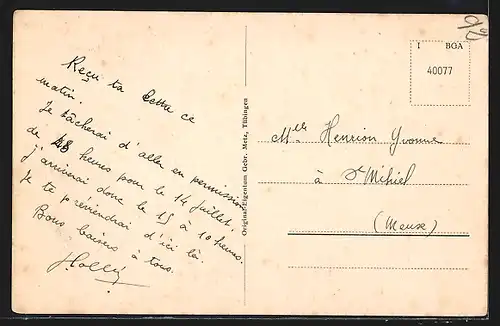 Reçu ta lettre ce
matin.
Je tâcherai d'aller en permission
de 48 heures pour le 14 Juillet.
j'arriverai donc le 13 à 10 heures.
Je te préviendrai d'ici là.
Bons baisers à tous.
Original-Eigentum Gebr. Metz, Tübingen
I BGA
40077
Mlle Henrion Yvonne
à St Mihiel
(Meuse)